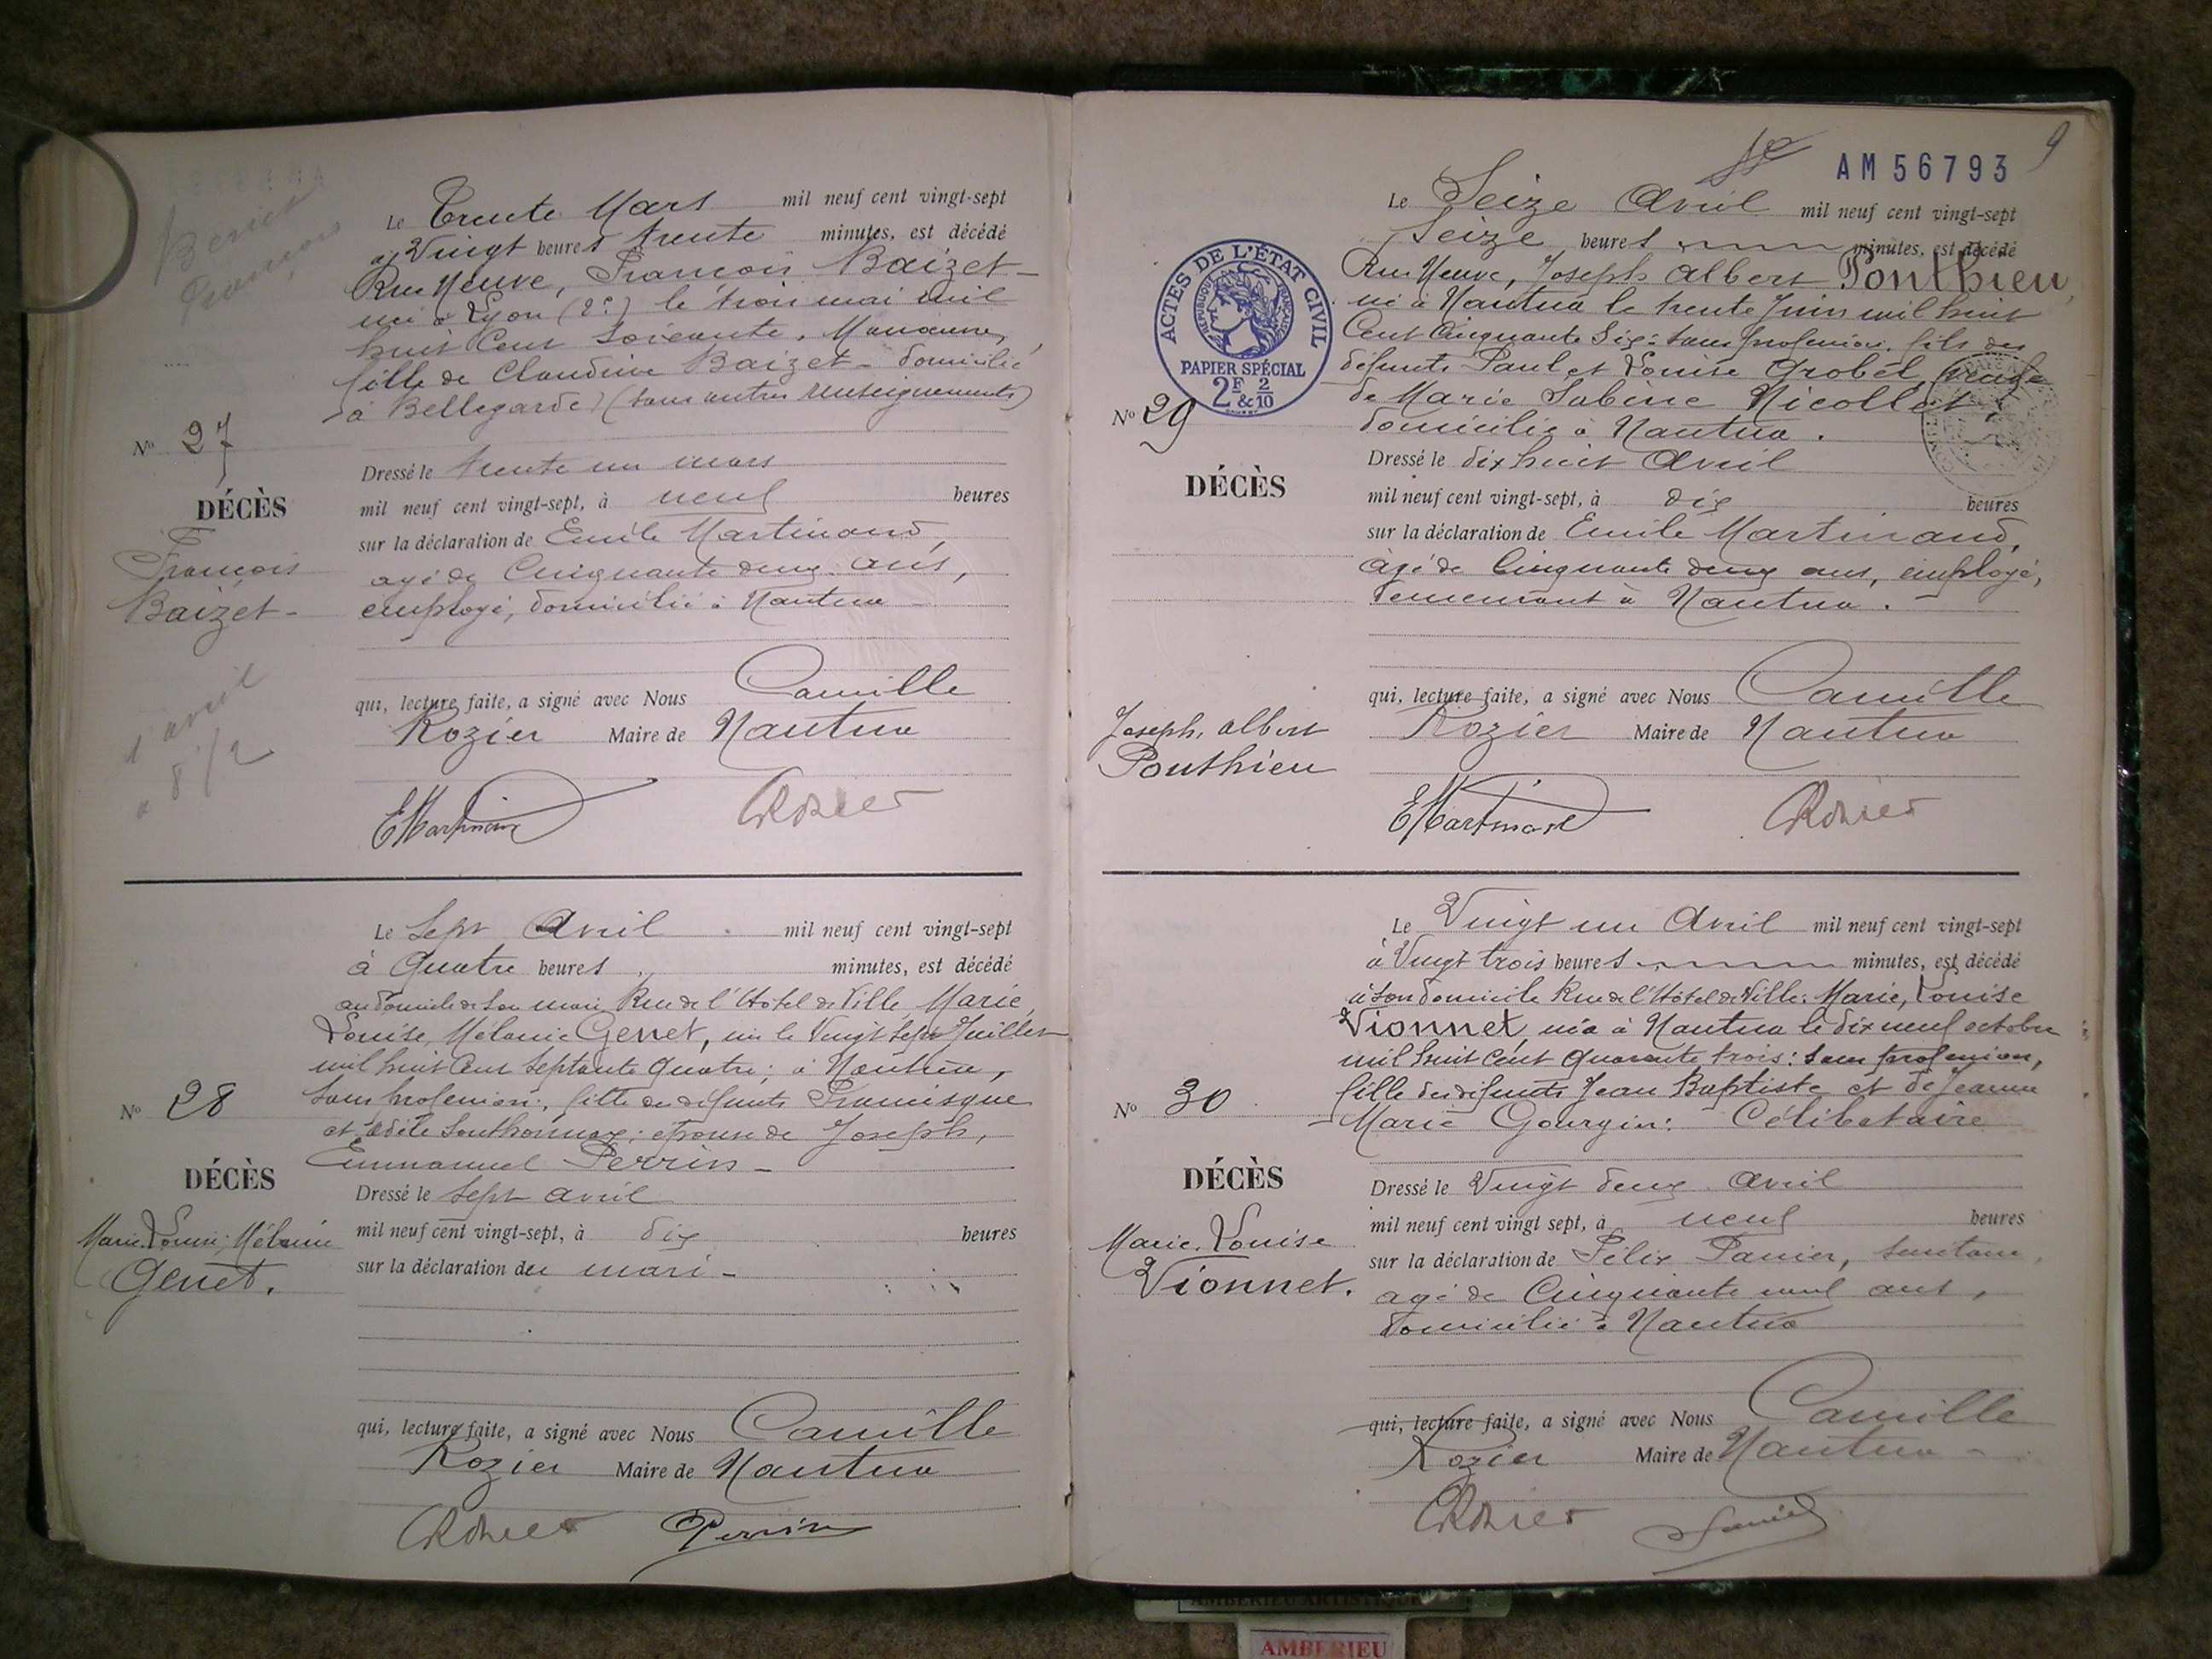 Le Trente Mars mil neuf cent vingt-sept
à Vingt heures trente minutes, est décédé
Rue Neuve, François Baizet -
né à Lyon (2e) le trois mai mil
huit cent soixante, Manœuvre,
fils de Claudine Baizet - domicilié
à Bellegarde) (sans autres renseignements)
No 27
Dressé le trente un mars
DÉCÈS
mil neuf cent vingt-sept, à neuf heures
sur la déclaration de Emile Martinand,
François
agé de Cinquante deux ans,
Baizet -
employé, domicilié à Nantua
1 avril
à 8 1/2
qui, lecture faite, a signé avec Nous Camille
Rozier Maire de Nantua
EMartinand CRozier
Le Sept Avril mil neuf cent vingt-sept
à Quatre heures minutes, est décédé
au domicile de son mari Rue de l'Hôtel de Ville, Marie,
Louise, Mélanie Genet, née le Vingt sept Juillet
mil huit cent septante quatre; à Nantua,
No 28
sans profession; fille de défunts Francisque
et Adèle Southonnax; épouse de Joseph,
Emmanuel Perrin -
DÉCÈS
Dressé le sept avril
Marie, Louise, Mélanie
mil neuf cent vingt-sept, à dix heures
Genet.
sur la déclaration du mari -
qui, lecture faite, a signé avec Nous Camille
Rozier Maire de Nantua
CRozier Perrin
AM 56793
9
Le Seize Avril mil neuf cent vingt-sept
Seize heures minutes, est décédé
Rue Neuve, Joseph Albert Ponthieu,
né à Nantua le trente Juin mil huit
Cent Cinquante Six: sans profession, fils des
défunts Paul et Louise Grobel, veuf
de Marie Sabine Nicollet
domicilié à Nantua.
ACTES DE L'ÉTAT CIVIL
RÉPUBLIQUE FRANÇAISE
PAPIER SPÉCIAL
2F & 2/10
No 29
Dressé le dix huit Avril
DÉCÈS
mil neuf cent vingt-sept, à dix heures
sur la déclaration de Emile Martinand,
âgé de Cinquante deux ans, employé,
demeurant à Nantua. -
Joseph, Albert
Ponthieu
qui, lecture faite, a signé avec Nous Camille
Rozier Maire de Nantua
EMartinand CRozier
Le Vingt un Avril mil neuf cent vingt-sept
à Vingt trois heures minutes, est décédé
à son domicile Rue de l'Hôtel de Ville: Marie, Louise
Vionnet, née à Nantua le dix neuf octobre
mil huit cent quarante trois: sans profession,
No 30
fille des défunts Jean Baptiste et de Jeanne
Marie Gourgin: Célibataire
DÉCÈS
Dressé le Vingt deux Avril
Marie. Louise
Vionnet.
mil neuf cent vingt sept, à neuf heures
sur la déclaration de Félix Panier,
agé de Cinquante neuf ans,
domicilié à Nantua
qui, lecture faite, a signé avec Nous Camille
Rozier Maire de Nantua -
CRozier Panier
AMBERIEU